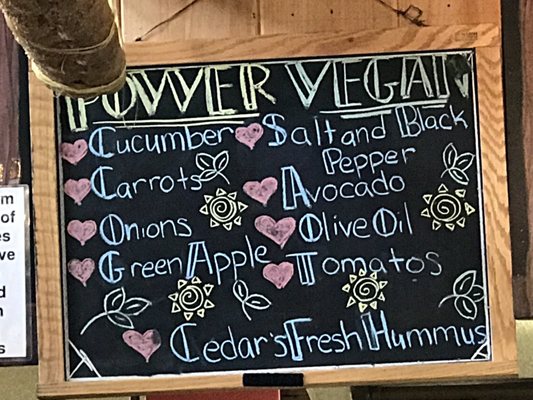 POWER VEGAN
Cucumber
Carrots
Onions
Green Apple
Salt and Black
Pepper
Avocado
Olive Oil
Tomatos
Cedar's Fresh Hummus
m
of
es
ve
d
n
s